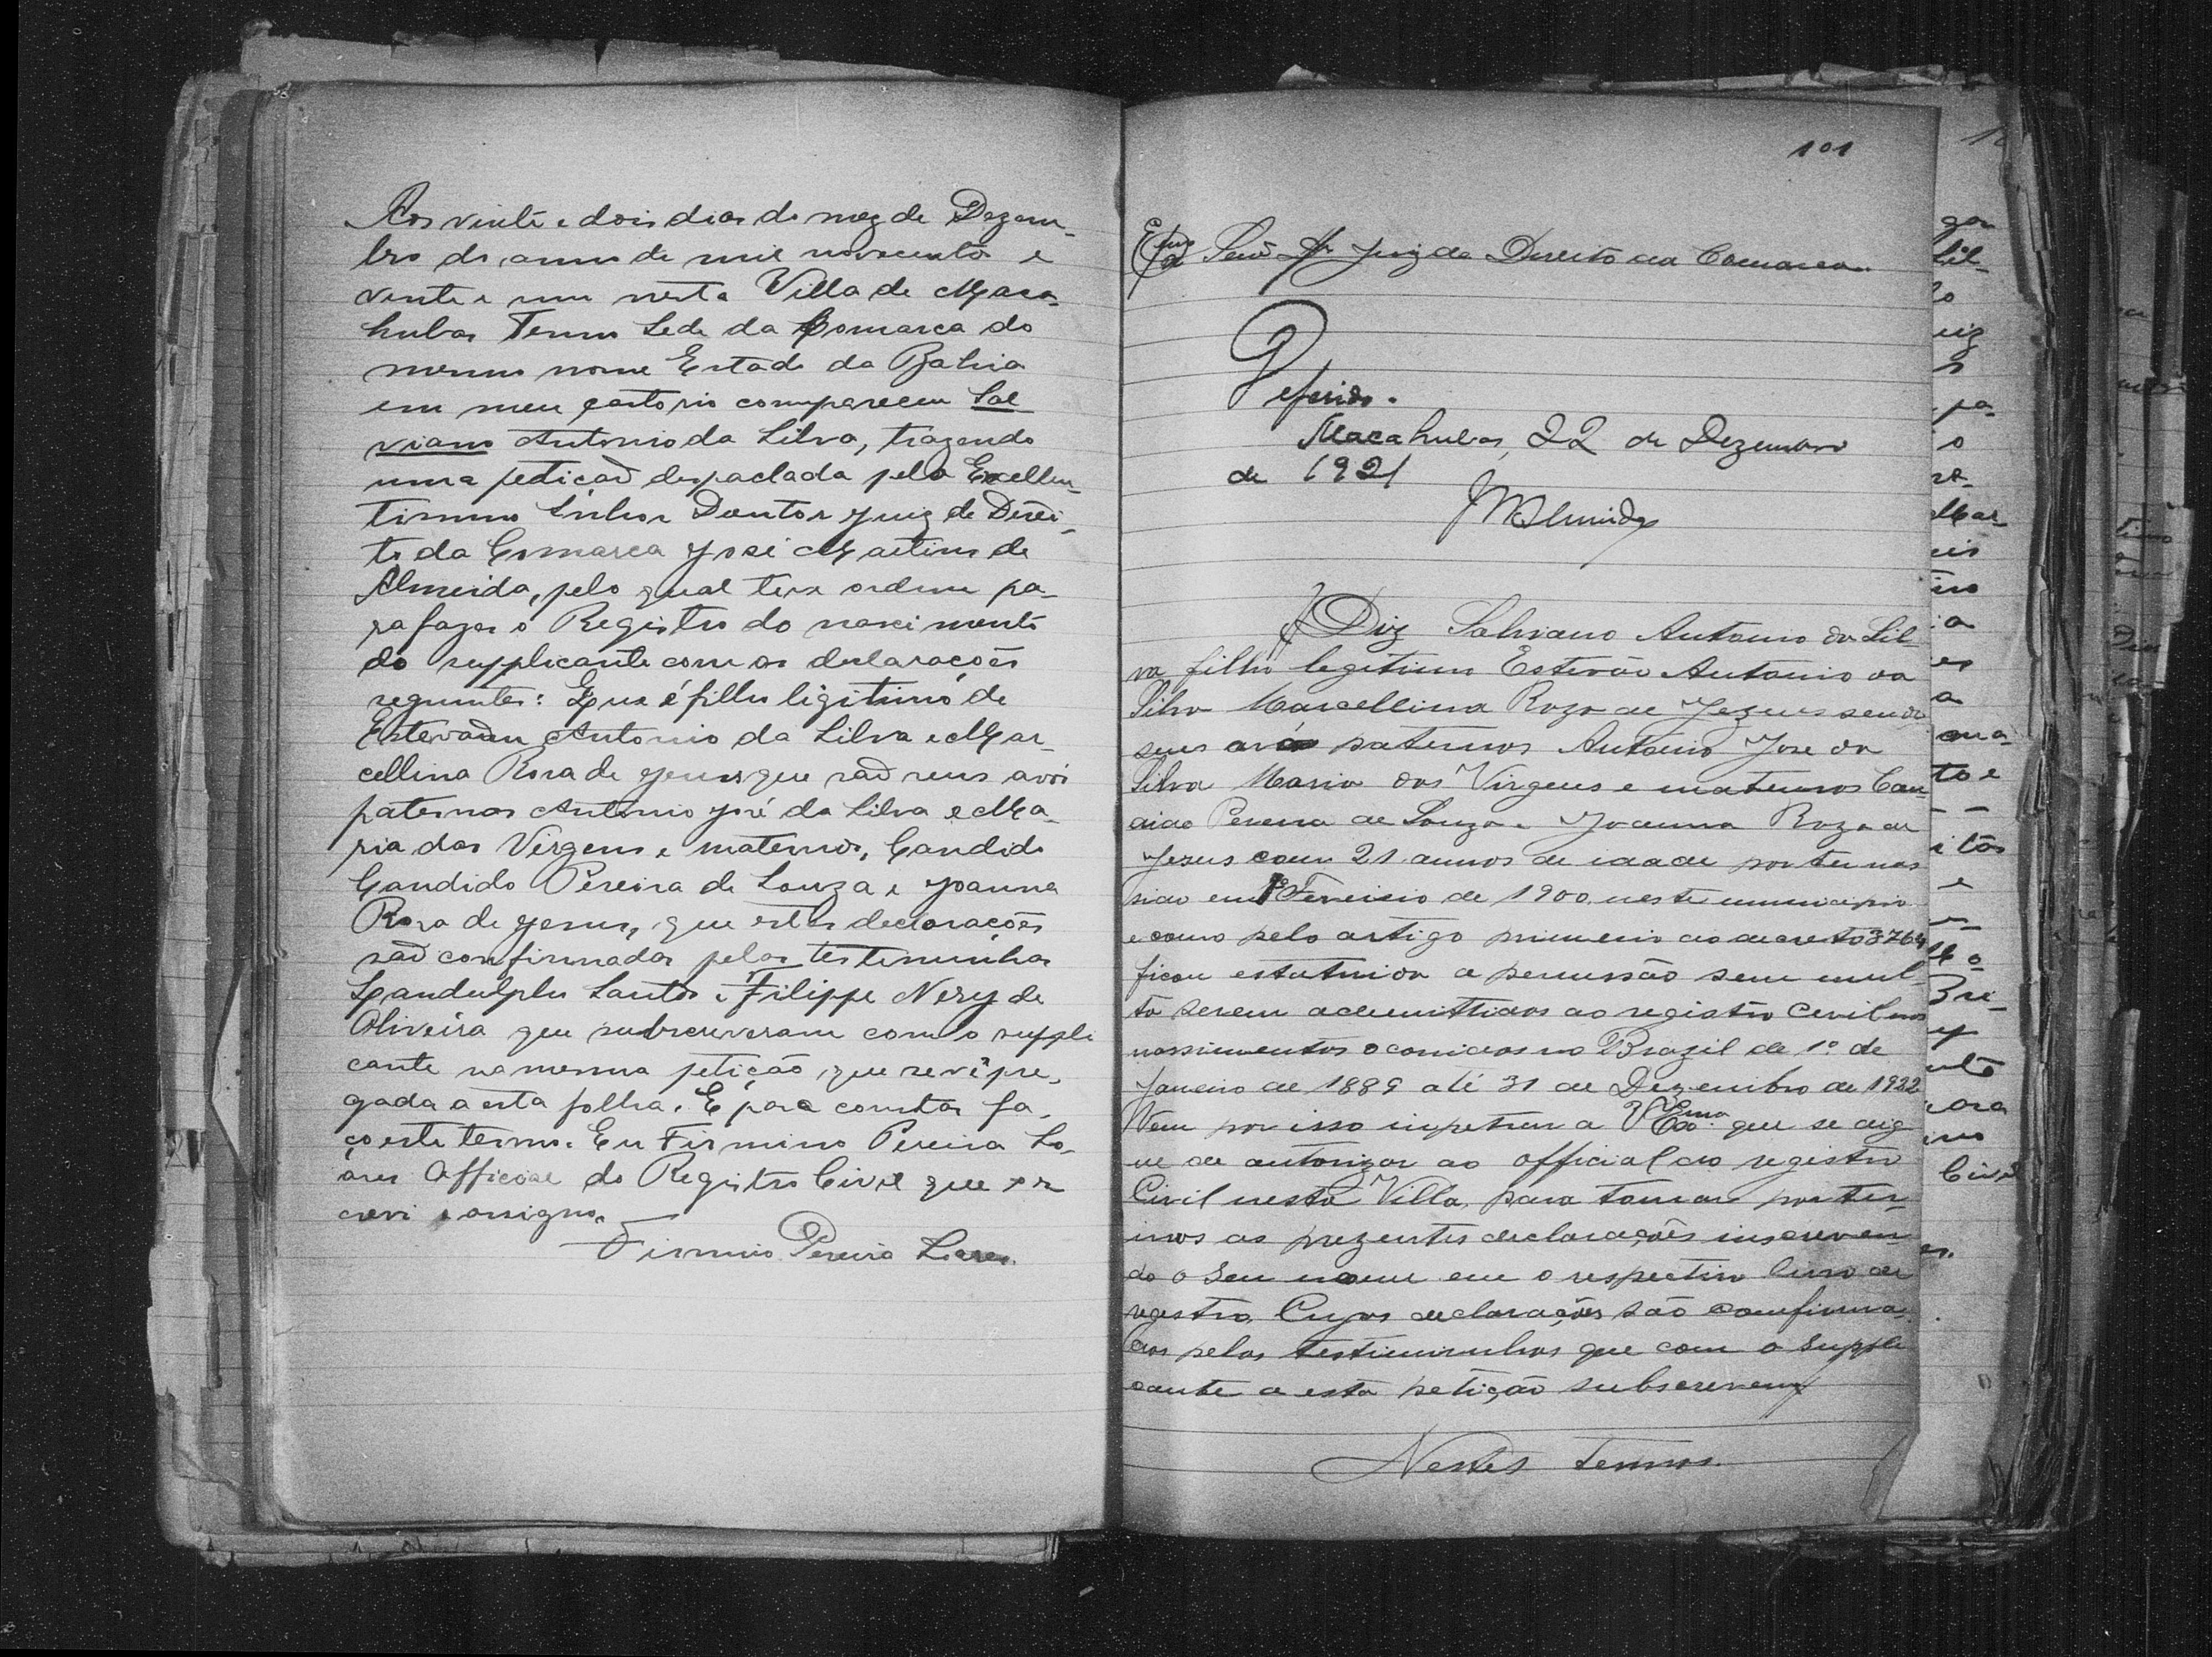 Aos vinte e dois dias do mez de Dezem-
bro do anno de mil novecentos e
vinte e um nesta Villa de Maca-
hubas Termo Sede da Comarca do
mesmo nome Estado da Bahia
em meu cartorio compareceu Sal
viano Antonio da Silva, trazendo
uma petição despachada pelo Excellen-
tissimo Senhor Doutor Juiz de Direi-
to da Comarca José Martins de
Almeida, pelo qual teve ordem pa-
ra fazer o Registro do nascimento
do supplicante com as declarações
seguintes: Que é filho ligitimo de
Estevam Antonio da Silva e Mar-
cellina Rosa de Jesus que são seus avós
paternos Antonio José da Silva e Ma-
ria das Virgens e maternos, Candido
Candido Pereira de Souza e Joanna
Rosa de Jesus, que estas declarações
são confirmadas pelas testemunhas
Landulpho Santos e Filippe Nery de
Oliveira que subscreveram com o suppli
cante na mesma petição que se vê pre-
gada a esta folha. E para constar fa-
ço este termo. Eu Firmino Pereira La-
ares Official do Registro Civil que es
crevi e assigno.
Firmino Pereira
101
Exmo Senr Dr Juiz de Direito da Comarca
Deferido.
Macahubas, 22 de Dezembro
de 1921
JMAlmeida
Diz Salviano Antonio da Sil-
va filho legitimo Estevão Antonio da
Silva Marcellina Roza de Jezus sendo
seus avós paternos Antonio Jose da
Silva Maria das Virgens e maternos Can-
dido Pereira de Souza e Joanna Roza de
Jezus com 21 annos de idade por ter nas
sido em 1º Fevereiro de 1900 neste municipio
e como pelo artigo primeiro do decreto 3764
ficou estatuida a permissão sem mul-
ta seremademittidos ao registro Civil nos
nassimentos occoridos no Brazil de 1º de
Janeiro de 1889 até 31 de Dezembro de 1922
Vem por isso impetrar a V Exma. que se dig
ne de autorizar ao official do registro
Civil nesta Villa para tomar por ter-
mos as prezentes declarações inscreven-
do o seu nome em o respectivo livro de
registro Cujas declarações são comfirma-
das pelas testimunhas que com o supple
cante a esta petição subscrevem
Nestes termos.